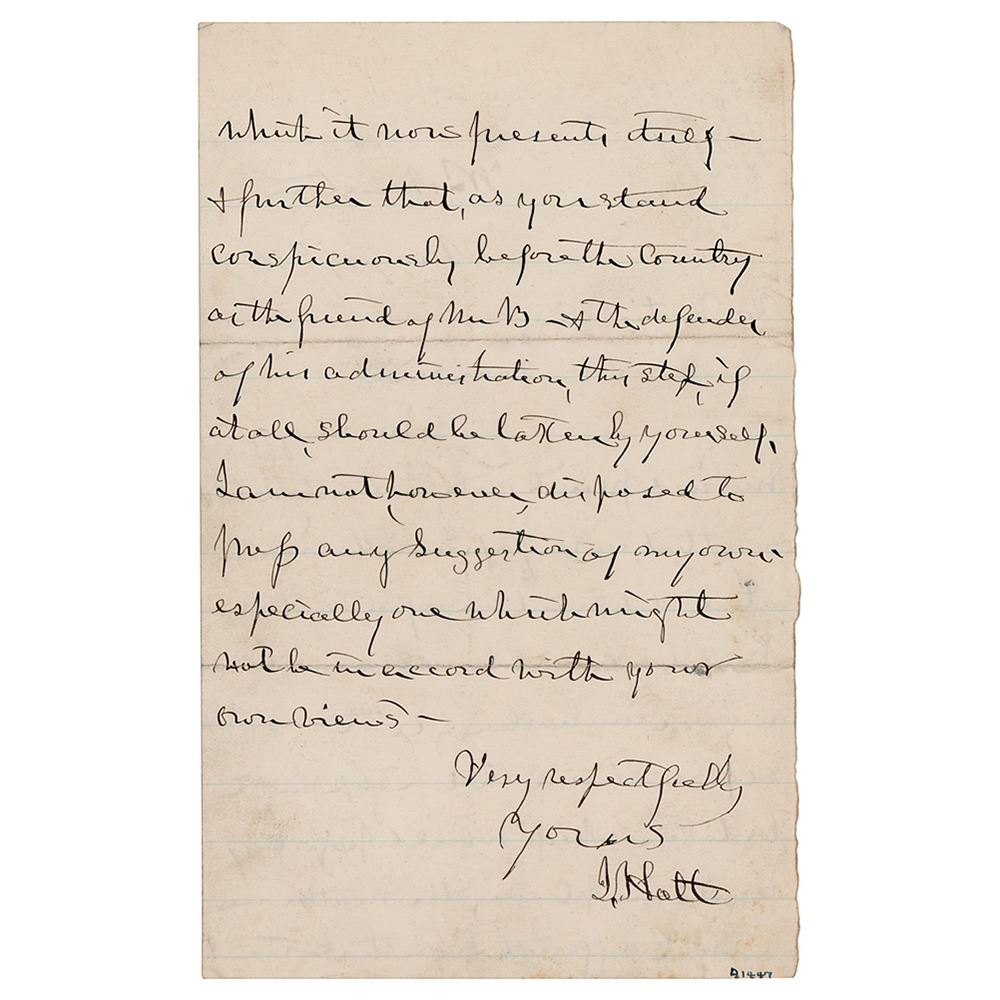 which it now presents itself —
& further that, as you stand
conspicuously before the Country
as the friend of Mr B — & the defender
of his administration, this step, if
at all, should be taken by yourself,
I am not, however, disposed to
press any suggestion of my own
especially one which might
not be in accord with your
own views —
Very respectfully
Yours
J. Holt